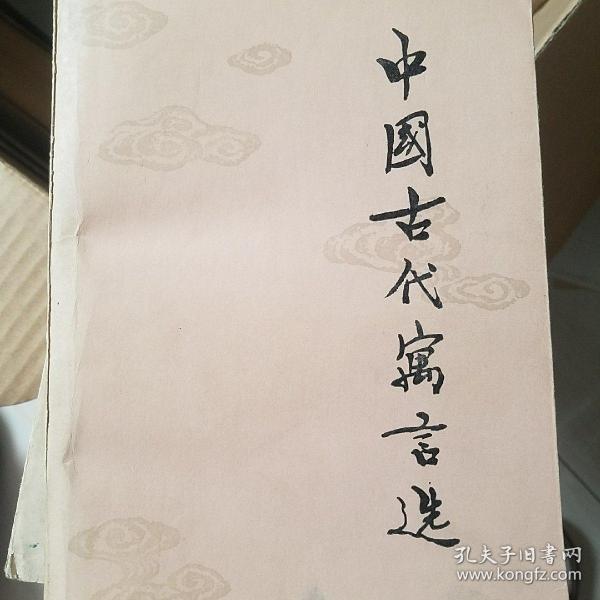 中國古代寓言选
孔夫子旧书网
www.kongfz.com